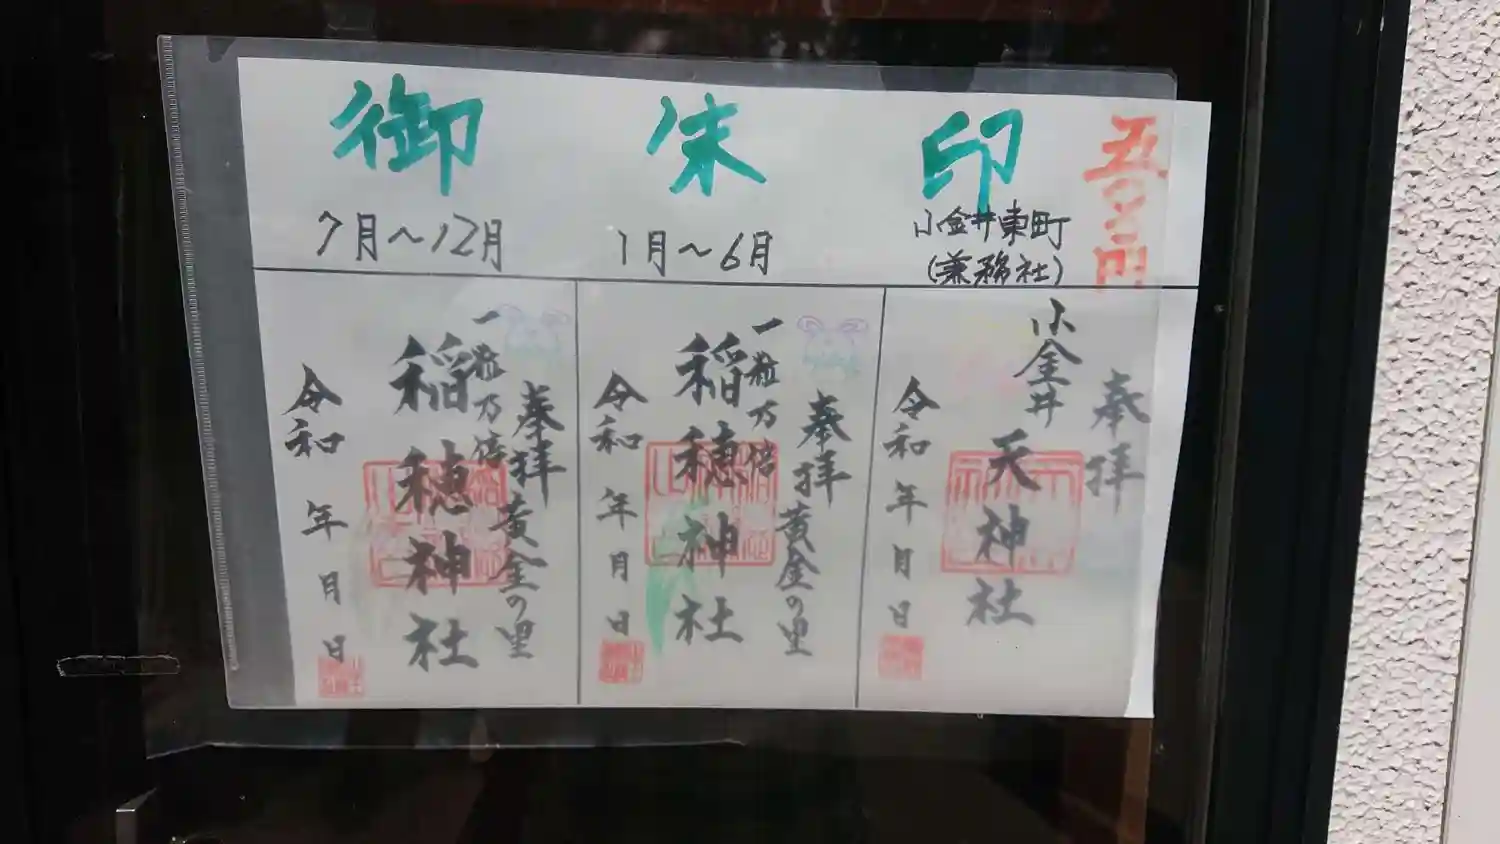 御朱印
五〇〇円
7月～12月
1月～6月
小金井東町
(兼務社)
奉拝
一粒万倍
黄金の里
稲穂神社
令和 年 月 日
奉拝
一粒万倍
黄金の里
稲穂神社
令和 年 月 日
奉拝
小金井
天神社
令和 年 月 日